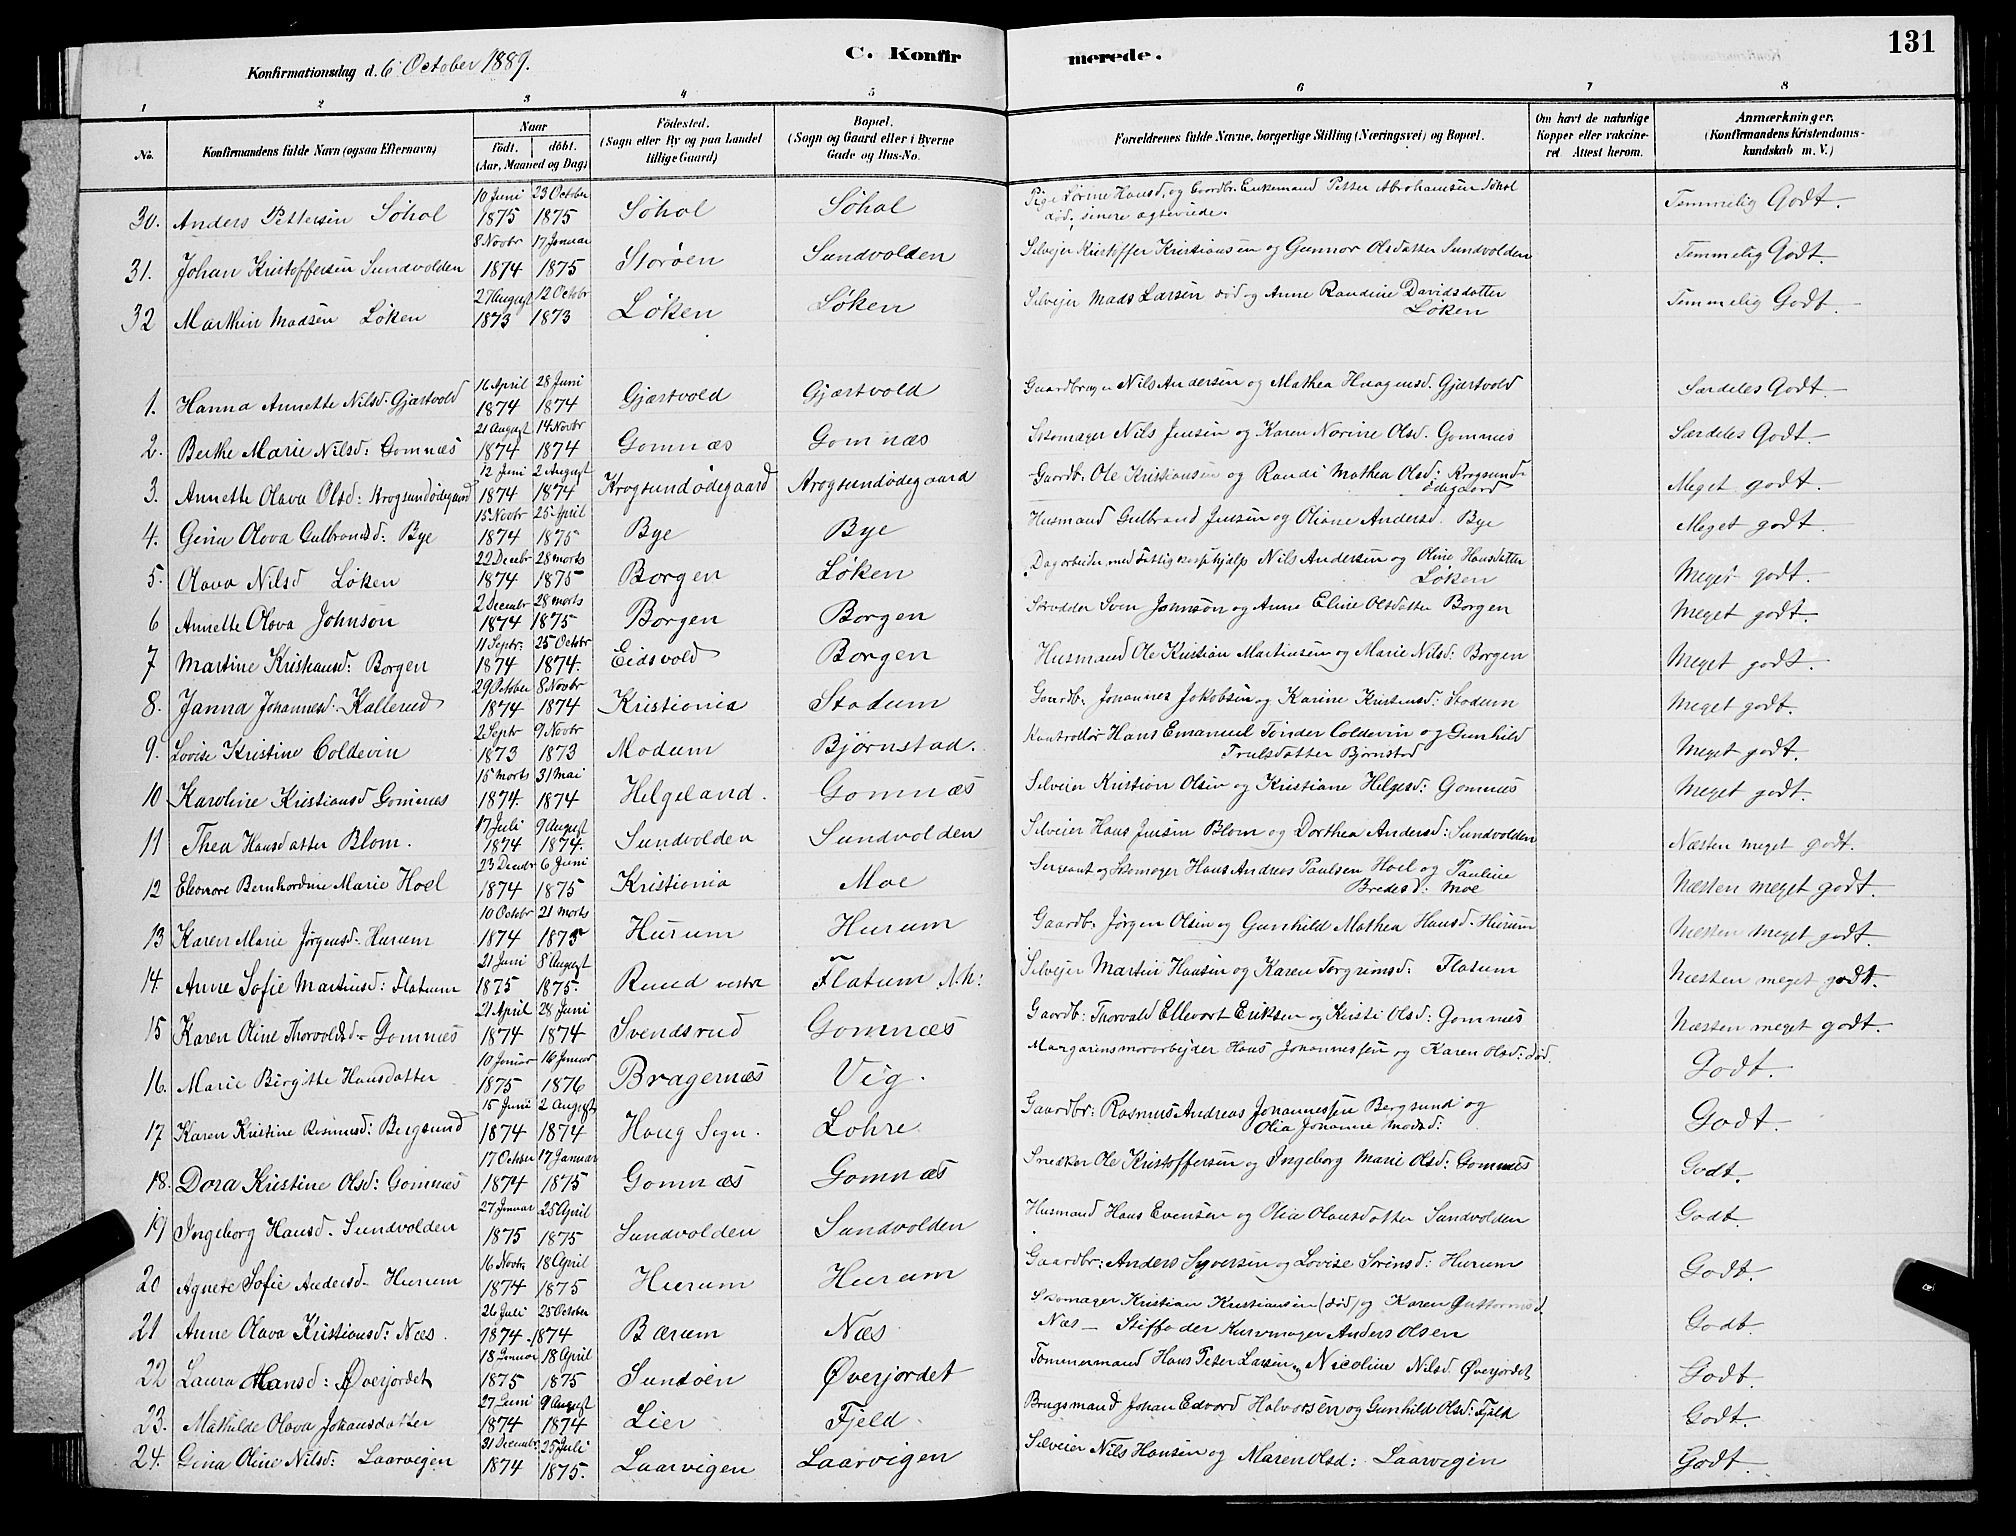 131
Konfirmationsdag d. 6 October 1889.
C. Konfir
merede.
1 2 3 4 5 6 7 8
No.
Konfirmandens fulde Navn (ogsaa Efternavn)
Naar
födt. döbt.
(Aar, Maaned og Dag)
Födested.
(Sogn eller By og paa Landet
tillige Gaard)
Bopæl.
(Sogn og Gaard eller i Byerne
Gade og Hus-No.
Forældrenes fulde Navne, borgerlige Stilling (Næringsvei) og Bopæl.
Om havt de naturlige
Kopper eller vakcine-
ret. Attest herom.
Anmærkninger.
(Konfirmandens Kristendoms-
kundskab m. V.)
10 Juni 23 October
30. Anders Pettersen Söhol 1875 1875 Söhol Söhol Pige Lorine Hansd. og Gaardbr. Enkemand Petter Abrahamsen Söhol
död, senere ægteviede. Temmelig Godt.
8 Novbr 17 Januar
31. Johan Kristoffersen Sundvolden 1874 1875 Storöen Sundvolden Selvejer Kristoffer Kristiansen og Gunnor Olsdatter Sundvolden Temmelig Godt.
27 August 12 Octobr
32 Marthin Madsen Løken 1873 1873 Løken Løken Selvejer Mads Larsen död og Anne Randine Davidsdatter
Løken Temmelig Godt.
16 April 28 Juni
1. Hanna Annette Nilsd. Gjæstvold 1874 1874 Gjæstvold Gjæstvold Gaardbruger Nils Andersen og Mathea Haagensd. Gjæstvold Særdeles Godt.
21 August 14 Novbr
2. Berthe Marie Nilsd: Gomnæs 1874 1874 Gomnæs Gomnæs Skomager Nils Jensen og Karen Norine Olsd. Gomnæs Særdeles Godt.
12 Juni 2 August
3. Annette Olava Olsd: Krogsundödegaard 1874 1874 Krogsundödegaard Krogsundödegaard Gaardb. Ole Kristiansen og Randi Mathea Olsd: Krogsund-
ödegaard Meget godt.
15 Novbr 25 April
4. Gina Olava Gulbransd: Bye 1874 1875 Bye Bye Husmand Gulbrand Jensen og Oliane Andersd. Bye Meget godt.
22 Decbr 28 marts
5. Olava Nilsd Løken 1874 1875 Borgen Løken Dagarbeider, med Fattigkasse hjælp Nils Andersen og Oline Hansdatter
Løken Meget godt.
2 Decembr 28 marts
6 Annette Olava Johnson 1874 1875 Borgen Borgen Skrædder Sven Johnson og Anne Eline Olsdatter Borgen Meget godt.
11 Septr. 25 Octobr
7 Martine Kristiansd: Borgen 1874 1874. Eidsvold Borgen Husmand Ole Kristian Martinsen og Marie Nilsd: Borgen Meget godt.
29 October 8 Novbr
8. Janna Johannesd. Kallerud 1874 1874 Kristiania Stadum Gaardb. Johannes Jakobsen og Karine Kristensd: Stadum Meget godt.
2 Septr 9 Novbr
9. Lovise Kristine Coldevin 1873 1873 Modum Bjørnstad. Kontrollör Hans Emanuel Tönder Coldevin og Gunhild
Trulsdatter Björnstad Meget godt.
15 marts 31 mai
10 Karoline Kristiansd Gomnæs 1874. 1874 Helgeland. Gomnæs Selveier Kristian Olsen og Kristiane Helgesd: Gomnæs Meget godt.
17 Juli 9 August
11 Thea Hansdatter Blom. 1874 1874. Sundvolden Sundvolden Selveier Hans Jensen Blom og Dorthea Andersd: Sundvolden Næsten meget godt.
23 Decbr 6 Juni
12 Eleonore Bernhardine Marie Hoel 1874 1875 Kristiania Moe Sergeant og Skomager Hans Andreas Paulsen Hoel og Pauline
Bredesd: Moe Næsten meget godt.
10 Octobr 21 marts
13 Karen Marie Jørgensd. Hurum 1874 1875 Hurum Hurum Gaardb. Jørgen Olsen og Gunhild Mathea Hansd. Hurum Næsten meget godt.
21 Juni 8 August
14. Anne Sofie Martinsd: Flatum 1875 1875. Ruud vestre Flatum Selvejer Martin Hansen og Karen Torgrimsd: Flatum Næsten meget godt.
21 April 28 Juni
15 Karen Oline Thorvoldsd- Gomnæs 1874 1874 Svendsrud Gomnæs Gaardb: Thorvald Ellevart Eriksen og Kirsti Olsd: Gomnæs Næsten meget godt.
10 Januar 16 Januar
16. Marie Birgitte Hansdatter 1875 1876 Bragernæs Vig. Margarinsmørarbejder Hans Johannessen og Karen Olsd: död. Godt.
15 Juni 2 August
17 Karen Kristine Rasmusd: Bergsund 1874 1874 Houg Sogn. Lohre Gaardbr: Rasmus Andreas Johannessen Bergsund og
Olia Johanne Madsd: Godt.
17 October 17 Januar
18. Dora Kristine Olsd: Gomnæs 1874 1875 Gomnæs Gomnæs Snedker Ole Kristoffersen og Ingeborg Marie Olsd: Gomnæs Godt.
27 Januar 25 April
19 Ingeborg Hansd. Sundvolden 1875 1875 Sundvolden Sundvolden Husmand Hans Evensen og Olia Olausdatter Sundvolden Godt
16 Novbr 18 April
20 Agnete Sofie Andersd- Hurum 1874 1875 Hurum Hurum Gaardbr: Anders Syversen og Lovise Sörensd: Hurum Godt.
26 Juli 25 October
21 Anne Olava Kristiansd: Næs. 1874 1874 Bærum Næs Skomager Kristian Kristiansen (død) og Karen Guttormsd.
Næs - Stiffader Kurvmager Anders Olsen Godt.
18 Januar 18 April
22 Laura Hansd: Øverjordet 1875 1875 Sundöen Øverjordet Tömmermand Hans Peter Larsen og Nicoline Nilsd. Øverjordet Godt.
27 Juni 9 August
23. Mathilde Olava Johansdatter 1874 1874 Lier Fjeld Brugsmand Johan Edvard Halvorsen og Gunhild Olsd: Fjeld Godt.
31 Decembr. 25 Juli
24. Gina Oline Nilsd: Laarvigen 1874 1875. Laarvigen Laarvigen Selveier Nils Hansen og Maren Olsd: Laarvigen Godt.